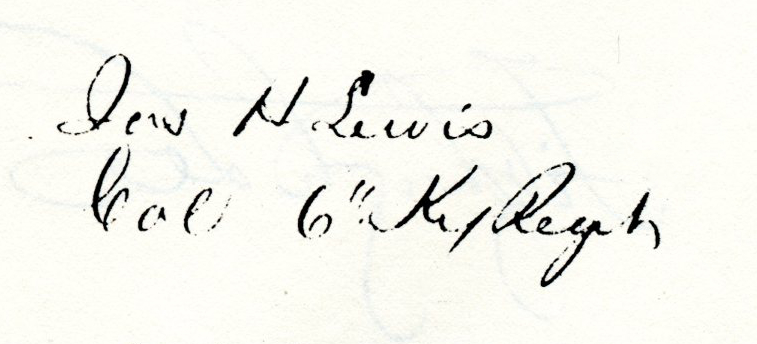 Jos H Lewis
Col 6th Ky Regt